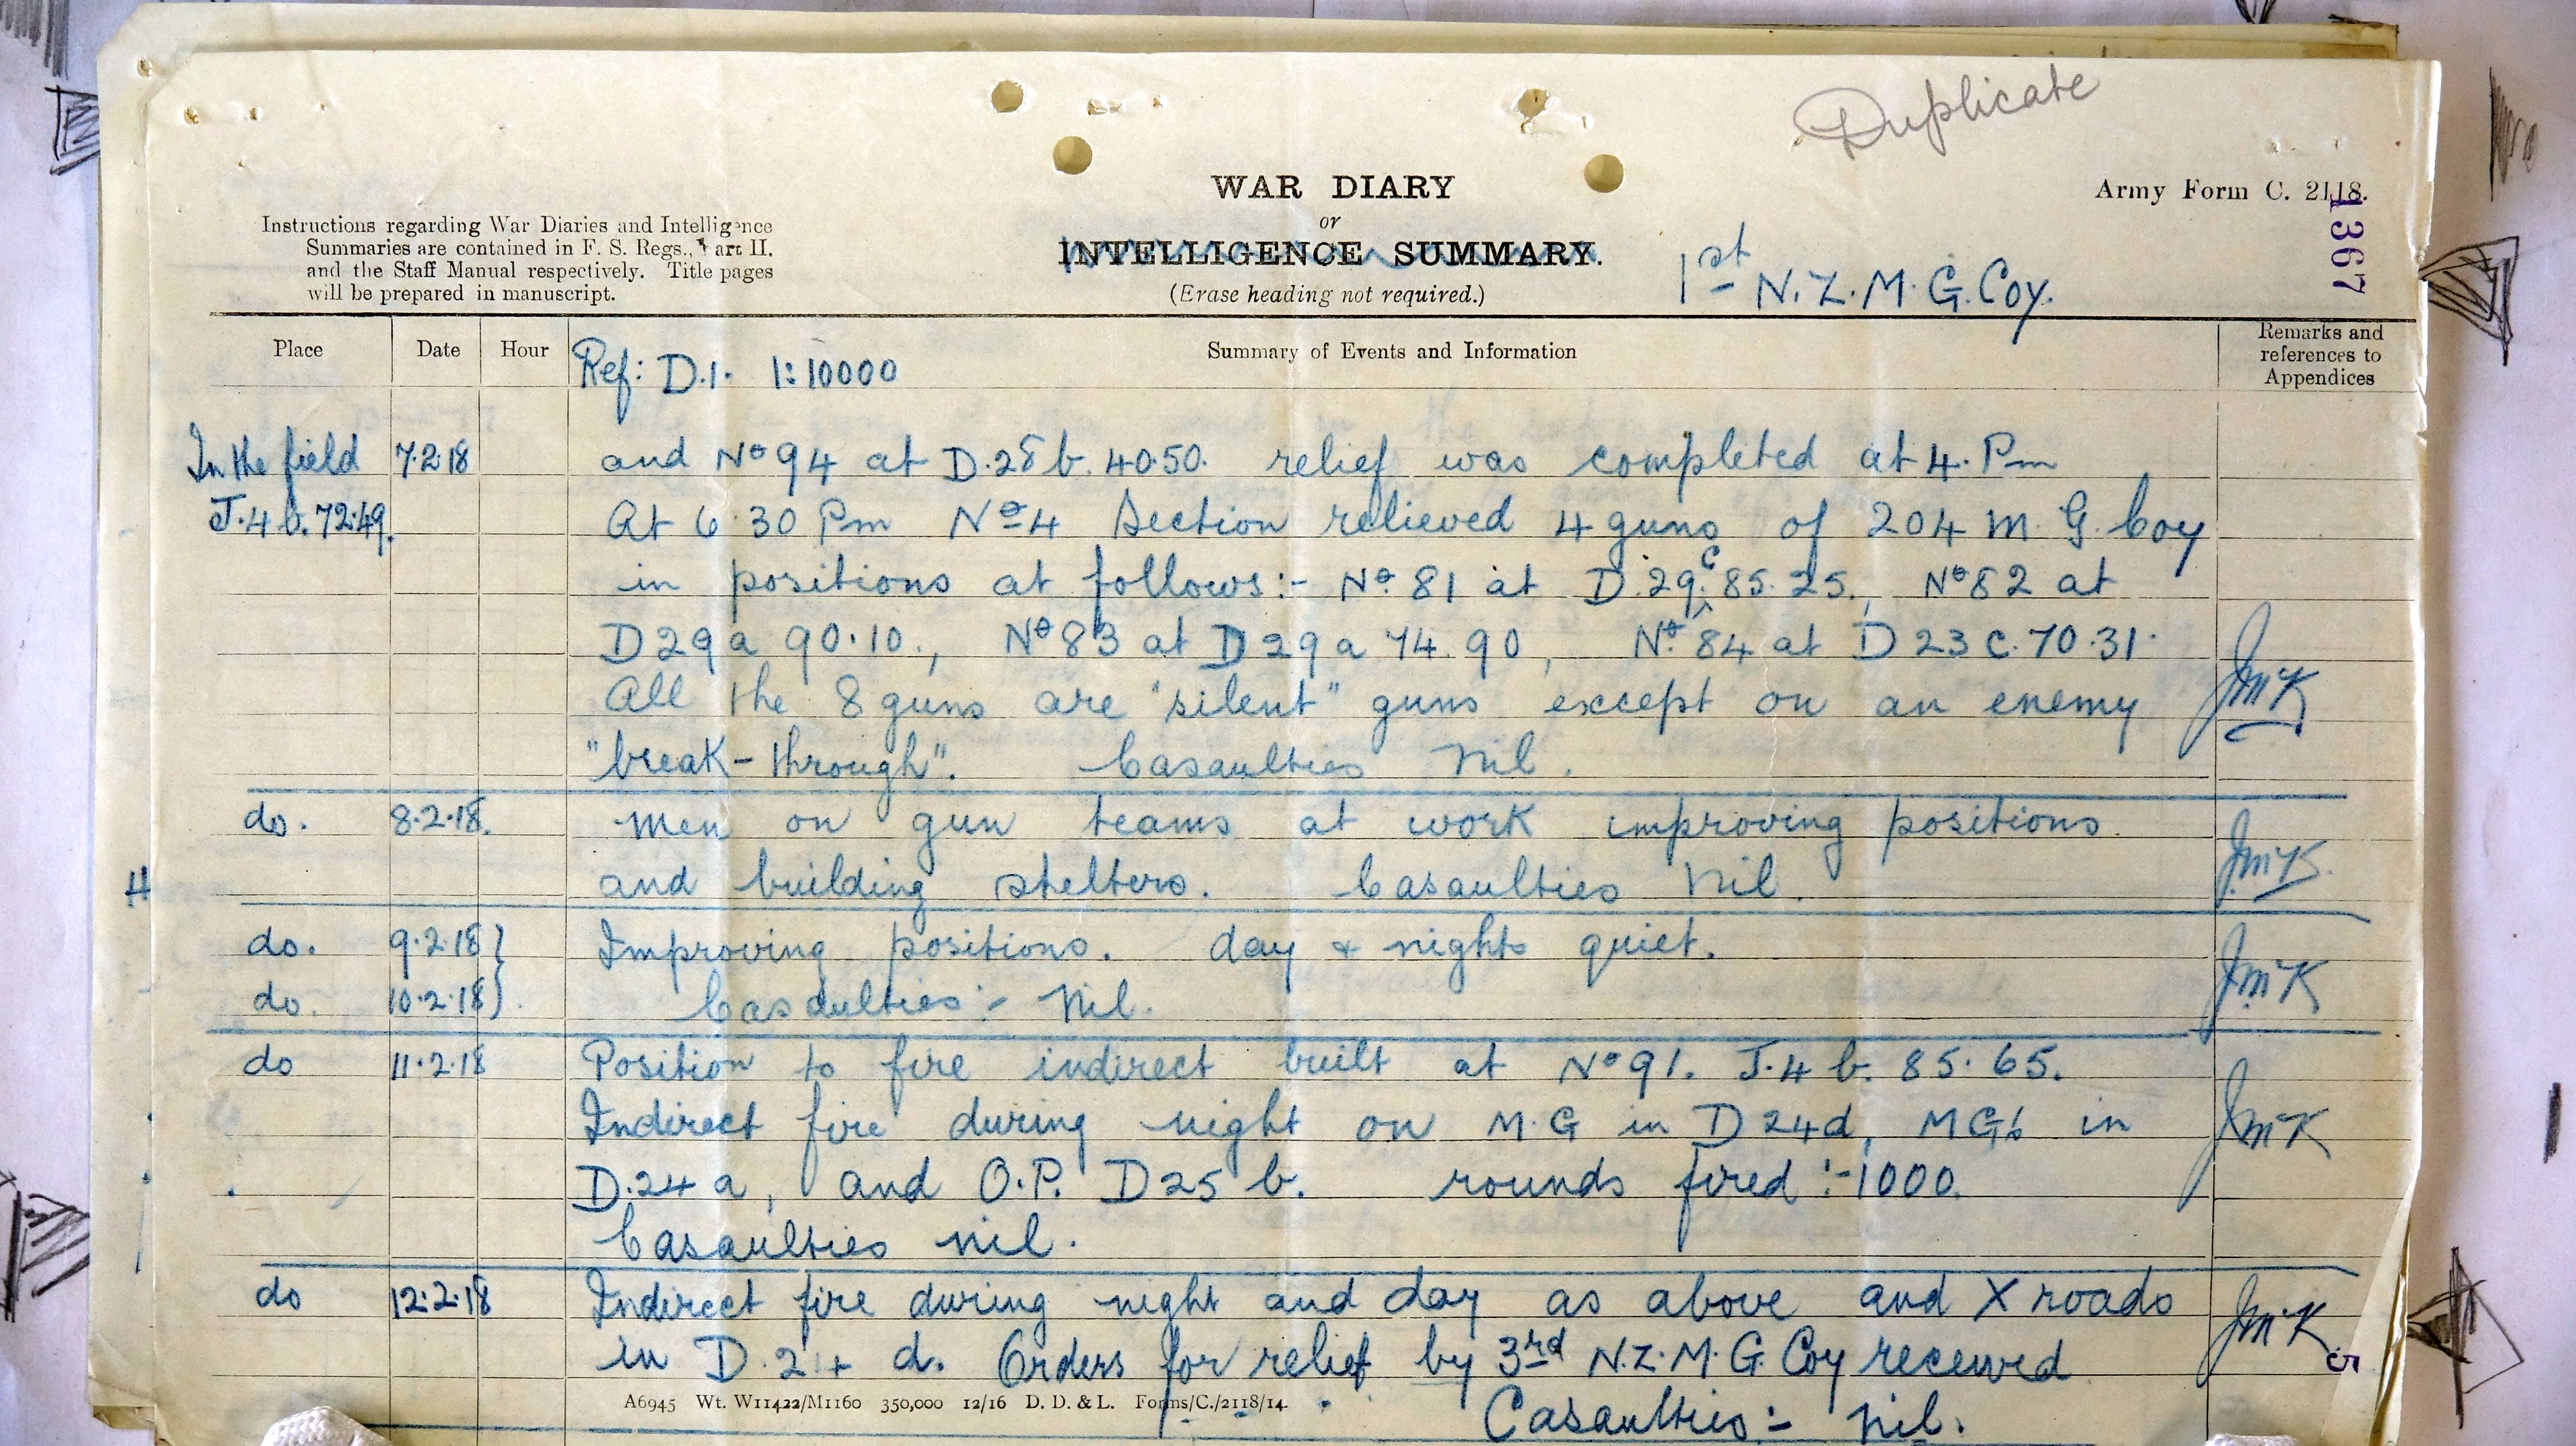 Duplicate
WAR DIARY
or
INTELLIGENCE SUMMARY.
(Erase heading not required.)
Army Form C. 2118.
1367
Instructions regarding War Diaries and Intelligence
Summaries are contained in F. S. Regs., Part II.
and the Staff Manual respectively. Title pages
will be prepared in manuscript.
1st N.Z.M.G. Coy.
Place Date Hour Summary of Events and Information Remarks and
references to
Appendices
Ref: D.1. 1:10000
In the field 7.2.18 and No 94 at D.28 b. 40.50. relief was completed at 4. Pm
J.4 b. 72.49. At 6.30 Pm No 4 Section relieved 4 guns of 204 M.G. Coy
in positions at follows:- No. 81 at D.29.c 85.25., No 82 at
D29a 90.10., No 83 at D29a 74.90, No. 84 at D23c.70.31.
All the 8 guns are "silent" guns except on an enemy JMcK
"break-through". Casaulties Nil.
do. 8.2.18. Men on gun teams at work improving positions
and building shelters. Casaulties Nil. JMcK.
do. 9.2.18} Improving positions. day & nights quiet.
do. 10.2.18} Casaulties:- Nil. JMcK
do 11.2.18 Position to fire indirect built at No 91. J.4 b. 85.65.
Indirect fire during night on M.G in D24d, MGs in JMcK
D.24 a, and O.P. D25 b. rounds fired:-1000.
Casaulties nil.
do 12.2.18 Indirect fire during night and day as above and X roads JMcK
in D.24 d. Orders for relief by 3rd N.Z.M.G. Coy received 5
A6945 Wt. W11422/M1160 350,000 12/16 D. D. & L. Forms/C./2118/14.
Casaulties:- nil.